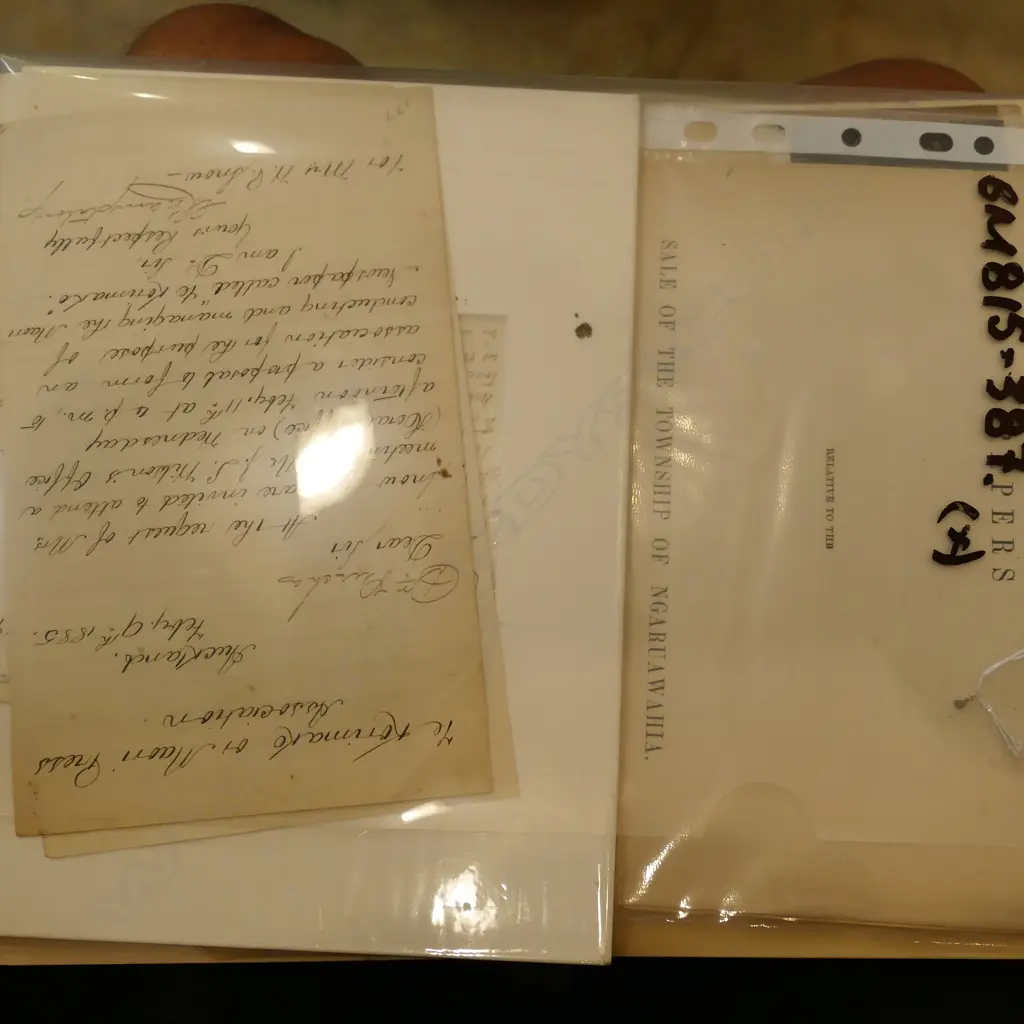 Te Korimako or Maori Press
Association.
Auckland.
Feby. 9th 1885.
Dr Purchas
Dear Sir
At the request of Mrs
Snow are invited to attend a
Mr J. L. Wilson's Office
on Wednesday
afternoon Feby. 11th at 4 p.m., to
consider a proposal to form an
association for the purpose of
conducting and managing the Maori
Newspaper called "Te Korimako".
I am Dr. Sir,
Yours Respectfully
For Mrs W. P. Snow –
PERS
RELATIVE TO THE
SALE OF THE TOWNSHIP OF NGARUAWAHIA.
BM815-387.
(x)